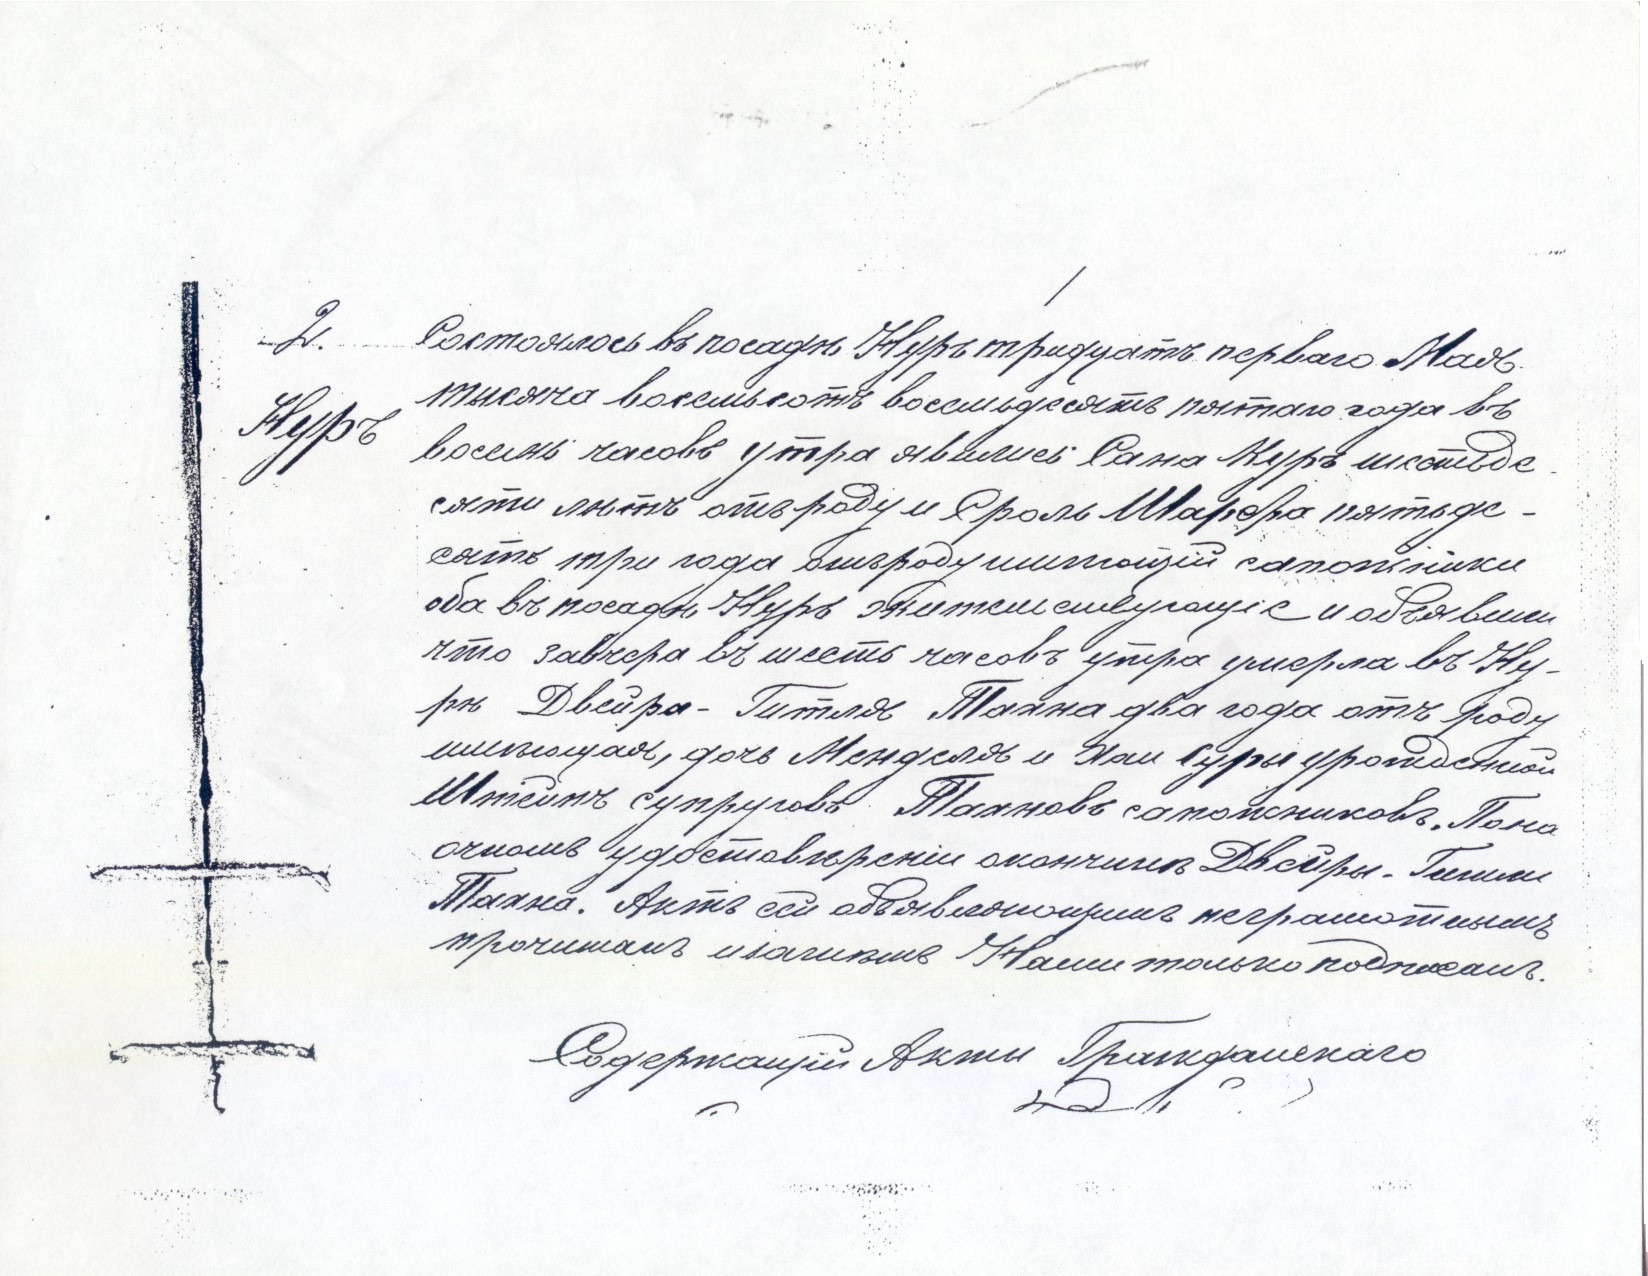 2. Состоялось въ посадѣ Нуръ тридцать перваго Мая
Нуръ тысяча восемьсотъ восемьдесятъ пятаго года въ
восемь часовъ утра явились Сана Куръ шестьде
сяти лѣтъ отъ роду и Сроль Шарфра пятьде-
сятъ три года отъ роду имѣющій сапожники
оба въ посадѣ Нуръ жительствующіе и объявили
что завчера въ шесть часовъ утра умерла въ Ну-
рѣ Двейра-Гитля Тахна два года отъ роду
имѣющая, дочь Менделя и Хаи Суры урожденной
Штейнъ супруговъ Тахновъ сапожниковъ. По на
очномъ удостовѣреніи о кончинѣ Двейры-Гитли
Тахна. Актъ сей объявляющимъ неграмотнымъ
прочитанъ и за симъ Нами только подписанъ.
Содержащій Акты Гражданскаго